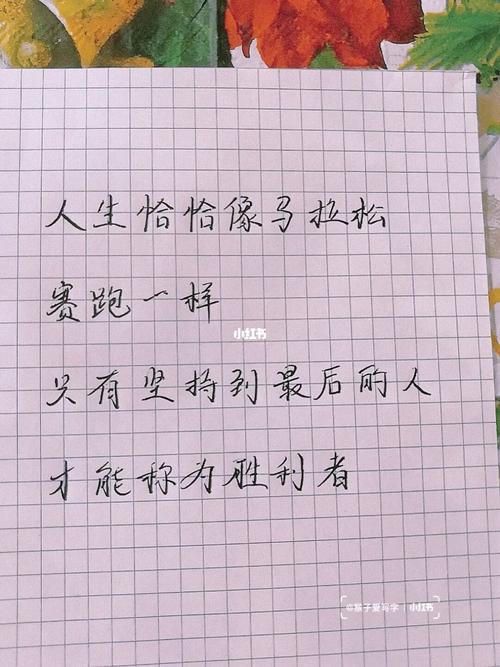 人生恰恰像马拉松
赛跑一样
小红书
只有坚持到最后的人
才能称为胜利者
@猴子爱写字 小红书